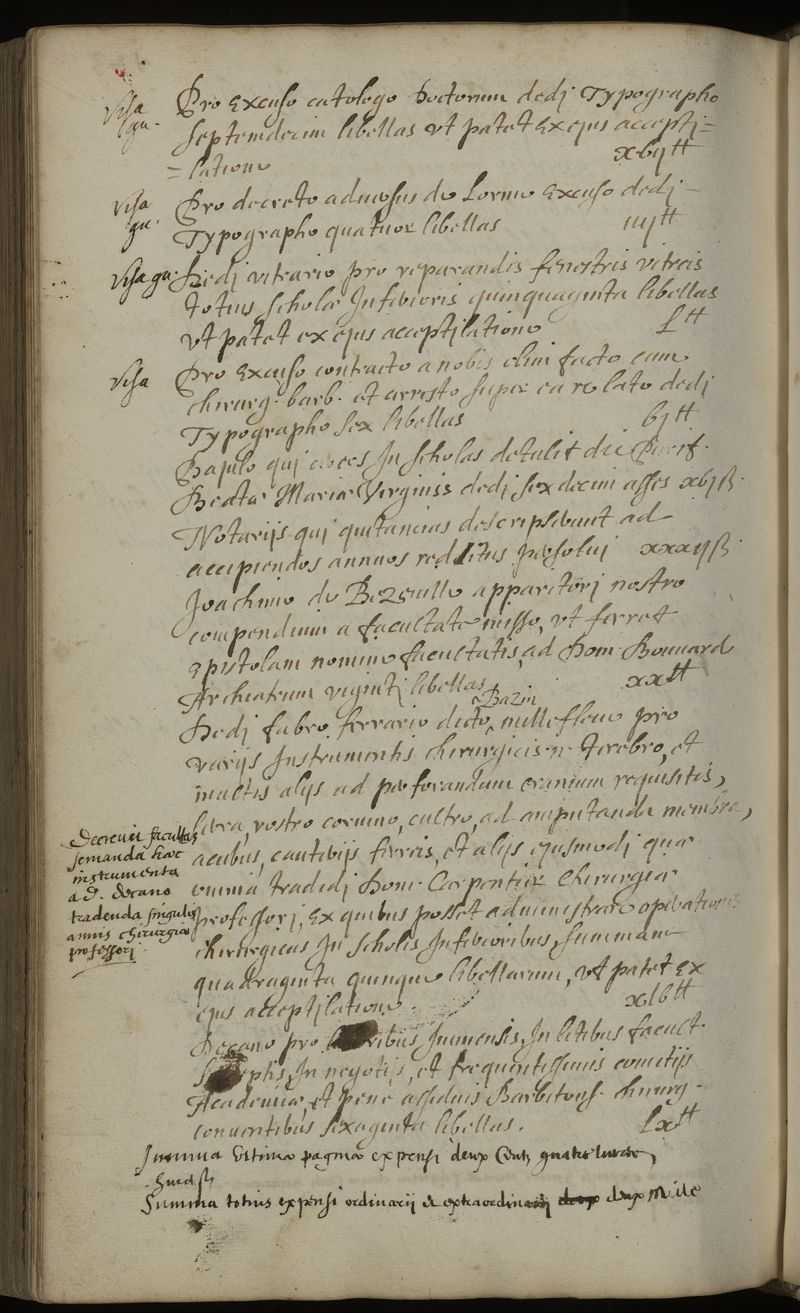 Visa
qu.
Pro excuso catologo Doctorum dedj Typographo
septemdecim libellas ut patet ex ejus accepti=
=latione xbij tt
Visa
qu.
Pro decreto adversus de Lorme excuso dedj
Typographo quatuor libellas iiij tt
Visa qu.
Dedj vitrario pro reparandis fenestris vitreis
totius scholæ Inferioris quinquaginta libellas
ut patet ex ejus acceptilatione L tt
Visa
Pro excuso contracto a nobis olim facto cum
chirurg. barb. et arresto super ea re lato dedj
Typographo sex libellas bj tt
Bajulo quj cereos In scholas detulit die Purif.
Beatæ Mariæ Virginis dedj sexdecim asses xbj ß
Notarijs quj quitancias descripserunt ad
accipiendos annuos redditus persoluj xxxij ß
Joachimo de Bezeville apparitorj nostro
compendium a facultate misso, ut ferret
epistolam nomine facultatis, ad Dom. Bouuard
Archiatrum vigintj libellas xx tt
Dedj fabro ferrario dicto Bazin millefleur pro
varijs Instrumentis chirurgicis n. terebro, et
multis alijs ad perforandum cranium requisitis,
serra, rostro corvino, cultro, ad amputanda membra,
acubus, cauterijs ferreis, et alijs ejusmodj quæ
omnia tradidj Dom. Carpentier Chirurgiæ
professorj, ex quibus posset administrare operationes
chirurgicas In scholis Inferioribus, summam
quadraginta quinque libellarum, ut patet ex
ejus acceptilatione. xlb tt
Decrevit facultas
servanda hæc
instrumenta
a D. decano
tradenda singulis
annis chirurgiæ
professorj
Decano pro laboribus Immensis, In litibus facult.
susceptis, In negotijs, et frequentissimis comitijs
Academiæ, et pene assiduis Barbitons. chirurg.
conventibus sexaginta libellas. Lx tt
Summa ultimæ paginæ expensi deux Cents quatre
Summa totius expensi ordinarij & extraordinarij deux mille